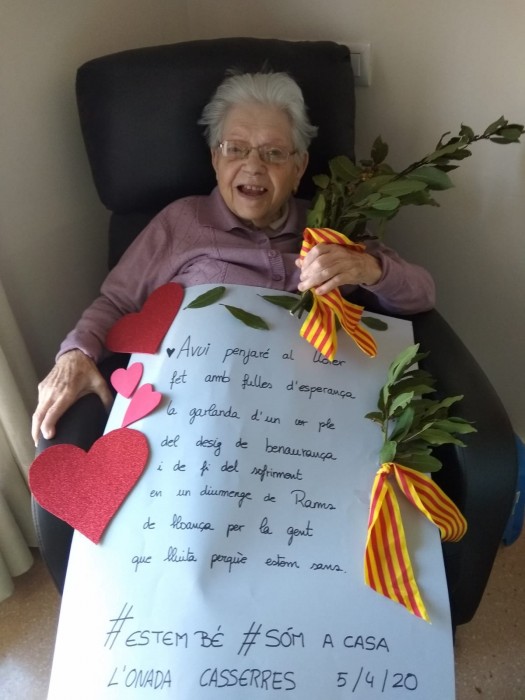 ♥ Avui penjaré al llorer
fet amb fulles d'esperança
la garlanda d'un cor ple
del desig de benaurança
i de fi del sofriment
en un diumenge de Rams
de lloança per la gent
que lluita perquè estem sans.
#ESTEM BÉ #SÓM A CASA
L'ONADA CASSERRES 5/4/20